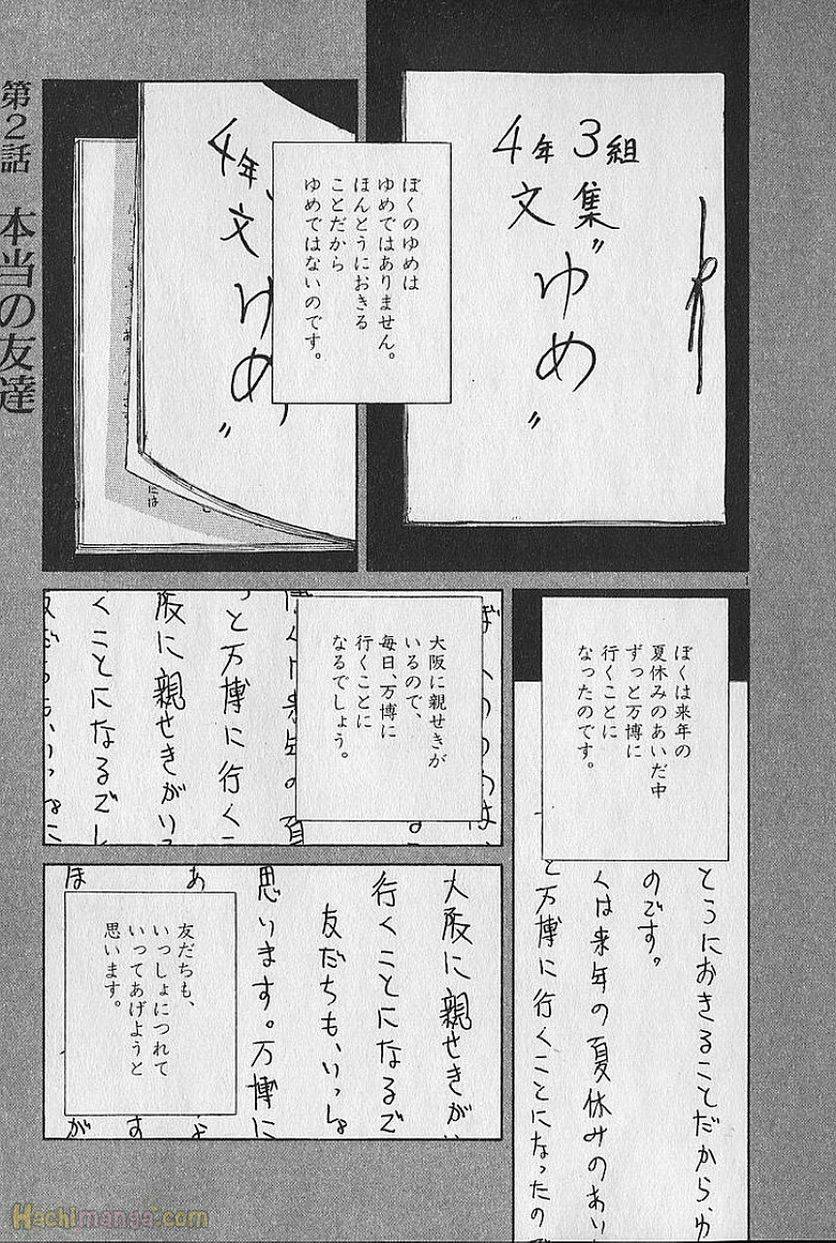 第2話 本当の友達
4年3組
文集
"ゆめ"
4年
文
ゆめ"
ぼくのゆめは
ゆめではありません。
ほんとうにおきる
ことだから
ゆめではないのです。
には
ぼくは来年の
夏休みのあいだ中
ずっと万博に
行くことに
なったのです。
とうにおきることだから、ゆ
のです。
くは来年の夏休みのあい
と万博に行くことになったので
大阪に親せきが
いるので、
毎日、万博に
行くことに
なるでしょう。
ぼくのゆめは、
ぼくは来年の夏
っと万博に行くこ
阪に親せきがい
くことになるでし
友だちも、いっしょに
大阪に親せきがい
行くことになるで
友だちも、いっしょ
思います。万博に
あ
ほ
友だちも、
いっしょにつれて
いってあげようと
思います。
よ
す
が
1
Hachimanga.com